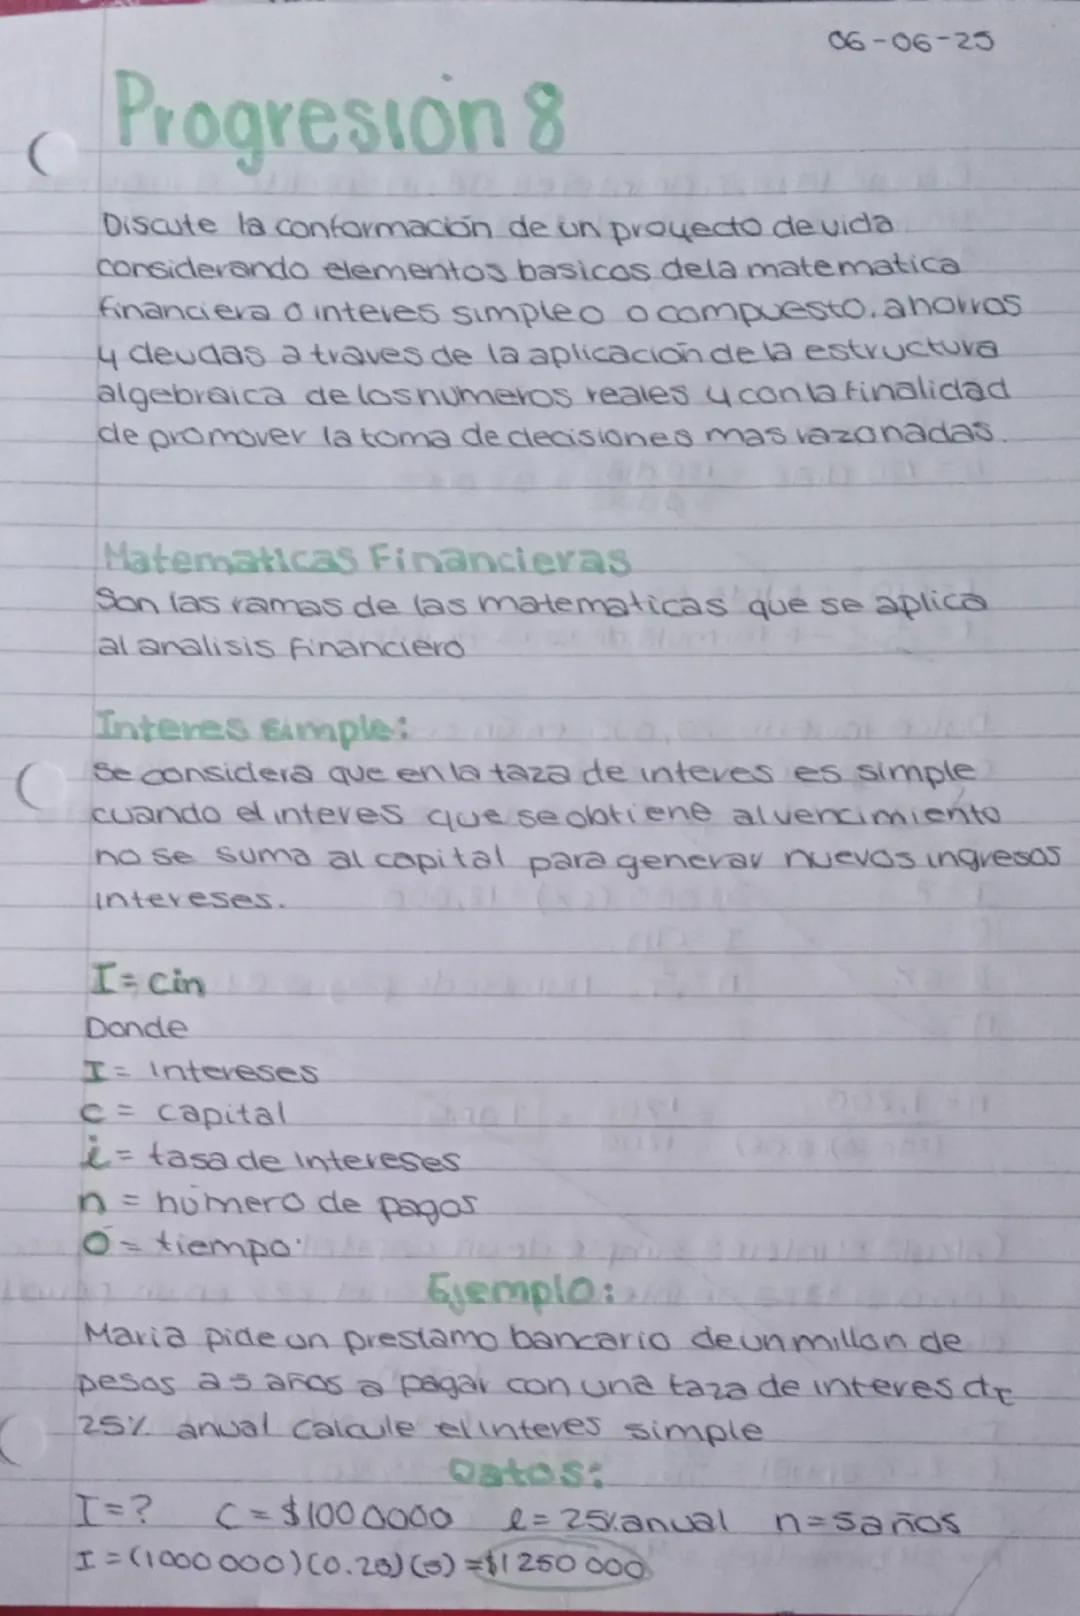 06-06-25
Progresión 8
Discute la conformación de un proyecto de vida
considerando elementos basicos de la matematica
financiera o interes simple o o compuesto. ahorros
y deudas a traves de la aplicación de la estructura
algebraica de los numeros reales y con la finalidad
de promover la toma de decisiones mas razonadas.
Matematicas Financieras
Son las ramas de las matematicas que se aplica
al analisis financiero
Interes simple:
Se considera que en la taza de interes es simple
cuando el interes que se obtiene al vencimiento
no se suma al capital para generar nuevos ingresos
intereses.
I = cin
Donde
I = Intereses
c = capital
i = tasa de Intereses
n = número de pagos
O = tiempo
Ejemplo:
Maria pide un prestamo bancario de un millon de
pesos a 5 años a pagar con una taza de interes de
25% anual calcule el interes simple
Datos:
I = ? C = $1000000 i = 25% anual n = 5 años
I = (1000 000)(0.25)(5) = $1 250 000